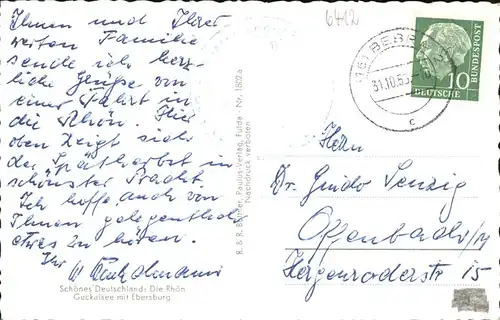 Ihnen und Ihrer
werten Familie
sende ich herz-
liche Grüße von
einer Fahrt in
die Rhön. Hier
oben zeigt sich
der Spätherbst in
schönster Pracht.
Ich hoffe auch von
Ihnen gelegentlich
etwas zu hören.
Ihr
Schönes Deutschland: Die Rhön
Guckaisee mit Ebersburg
Paulus-Verlag, Fulda · Nr. 1882a
Nachdruck verboten
6412
BEBR
31.10.55
c
10
DEUTSCHE
BUNDESPOST
Herrn
Dr. Guido Senzig
Offenbach/M
Hergenröderstr 15